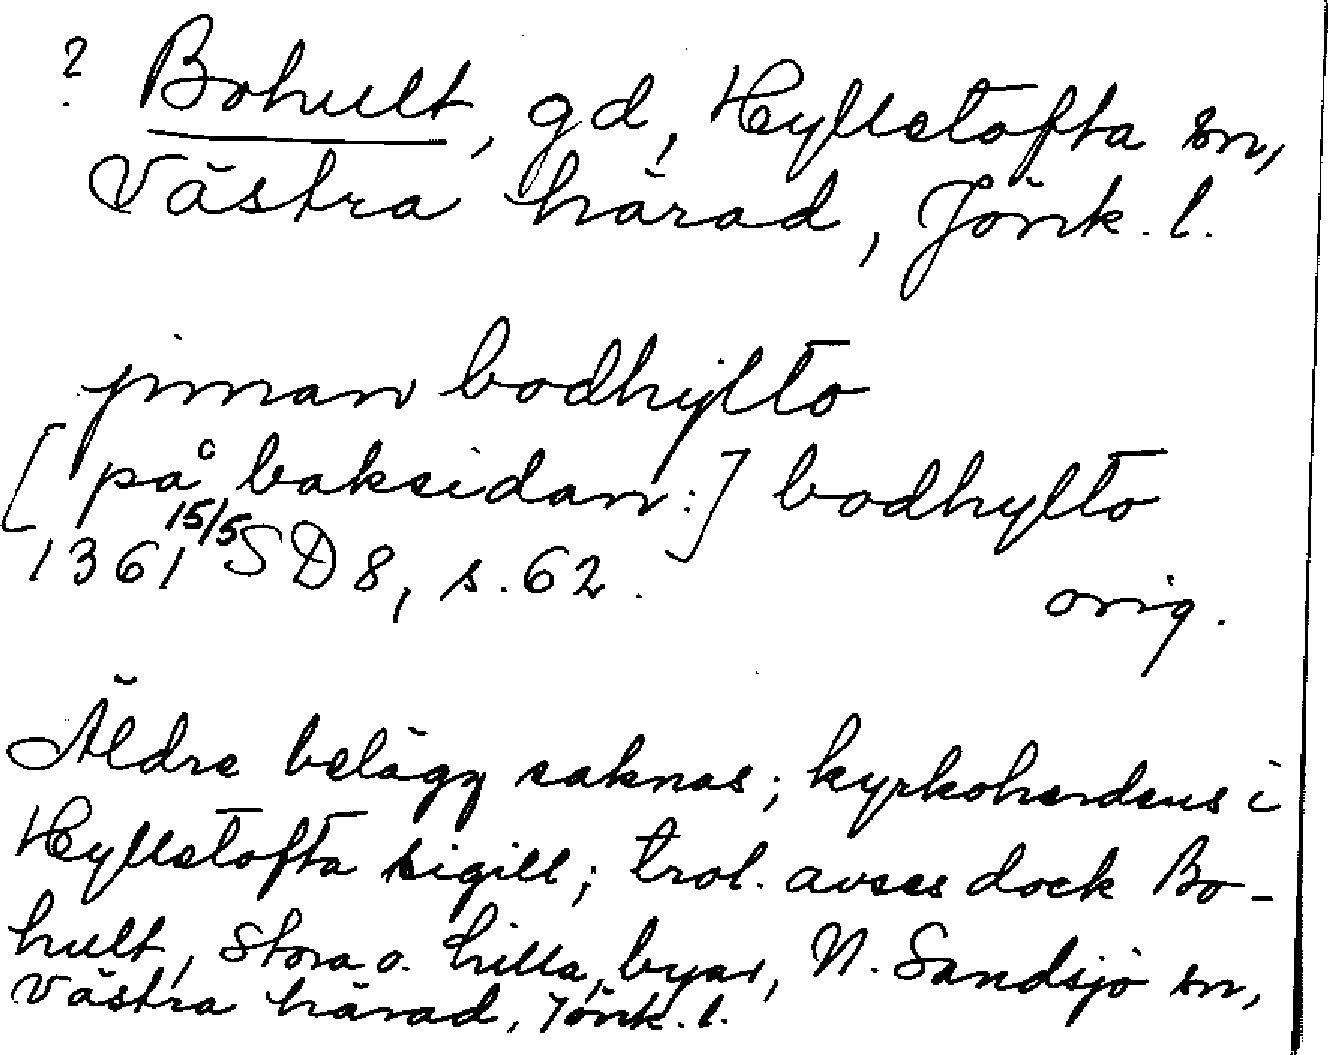 ? Bohult, gd, Hyllstofta sn,
Västra härad, Jönk. l.
jnnan bodhylto
[på baksidan:] bodhylto
1361 15/5 SD 8, s. 62.
orig.
Äldre belägg saknas; kyrkoherdens i
Hyllstofta sigill; trol. avses dock Bo-
hult, Stora o. Lilla, byar, N. Sandsjö sn,
Västra härad, Jönk. l.